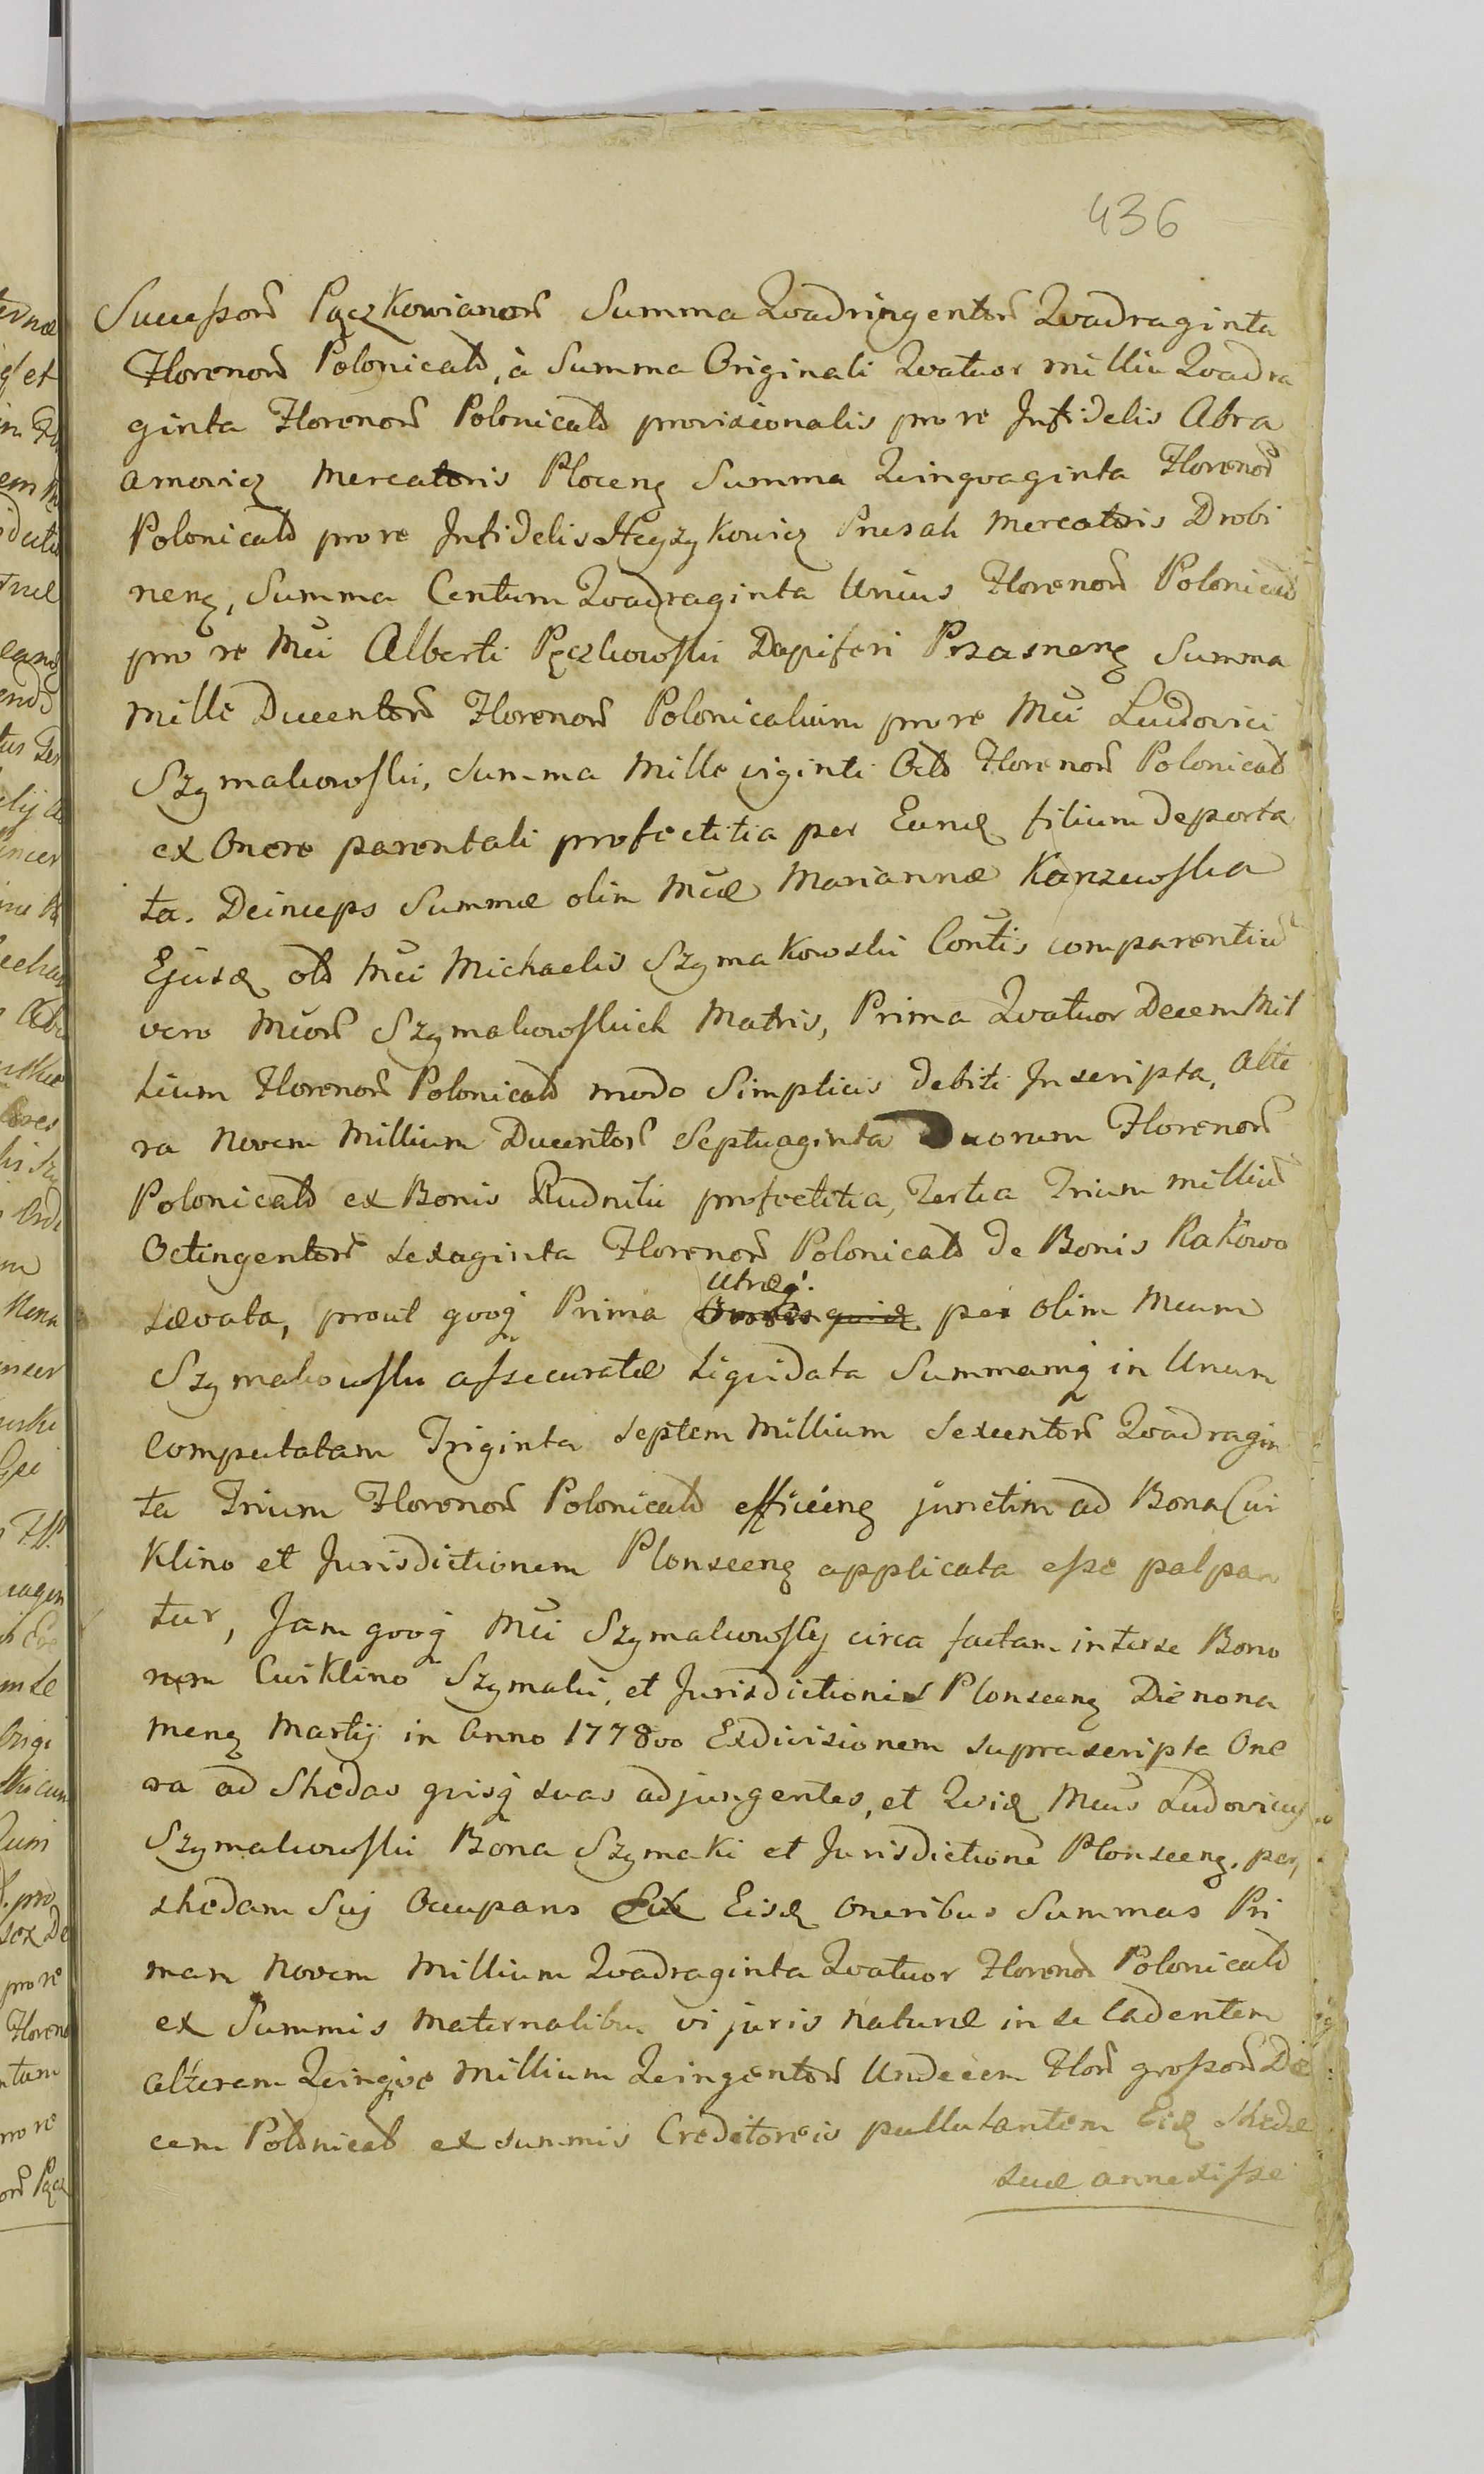 436
Successorũ Pączkowianorũ Summa Qvadringentorũ Qvadraginta
Florenorũ Polonicaliũ, à Summa Originali Qvatuor milliu Qvadra
ginta Florenorũ Polonicaliũ provisionalis pro re Infidelis Abra
amowicz Mercatoris Plocenᶎ Summa Qvinqvaginta Florenorũ
Polonicaliũ pro re Infidelis Heyzykowicz Prusak Mercatoris Drobi
nenᶎ, Summa Centum Qvadraginta Unius Florenorũ Polonicaliũ
pro re Mci Alberti Pęczkowski Dapiferi Przasnenᶎ Summa
Mille Ducentorũ Florenorũ Polonicalium pro re Mci Ludovici
Szymakowski, Summa Mille viginti Octo Florenorũ Polonicaliũ
ex Onere parentali profectitia per Eundᶎ filium deporta
ta. Deinceps Summæ olim Mcæ Mariannæ Karzewska
Ejusdᶎ olỉ Mci Michaelis Szymakowski Contis comparentiũ
vero Mcorũ Szymakowskich Matris, Prima Qvatuor Decem Mil
lium Florenorũ Polonicaliũ modo Simplicis debiti Inscripta, Alte
ra Novem Millium Ducentorũ Septuaginta Duorum Florenorũ
Polonicaliũ ex Bonis Rudniki profectitia, Tertia Trium milliũ
Octingentorũ sexaginta Florenorũ Polonicaliũ de Bonis Rakowo
Lævata, prout qvoqᶎ Prima Utræqᶎ per olim Mcum
Szymakowski assecuratæ Liqvidata Summamqᶎ in Unum
Computatam Triginta Septem Millium Sexcentorũ Qvadragin
ta Trium Florenorũ Polonicaliũ efficienᶎ junctim ad Bona Cwi
klino et Jurisdictionem Plonscenᶎ applicata esse palpan
tur, Jam qvoqᶎ Mci Szymakowscy circa factam inter se Bono
rum Cwiklino Szymaki, et Jurisdictionis Plonscenᶎ Die nona
Menᶎ Martij in Anno 1778vo Exdivisionem suprascripta One
ra ad Shedas qvisqᶎ suas adjungentes, et Qvidᶎ Mcus Ludovicus
Szymakowski Bona Szymaki et Jurisdictionẽ Plonscenᶎ, per
shedam Sui Occupans Ex Eisdᶎ Oneribus Summas Pri
mam Novem Millium Qvadraginta Qvatuor Florenorũ Polonicaliũ
ex Summis Maternalibus vi juris Naturæ in se Cadentem
alteram Qvinqve Millium Qvingentorũ Undecem Florũ grossorũ De
cem Polonicaliũ ex summis Creditoreis pullulantem Eidᶎ Shedæ
suæ annexisse